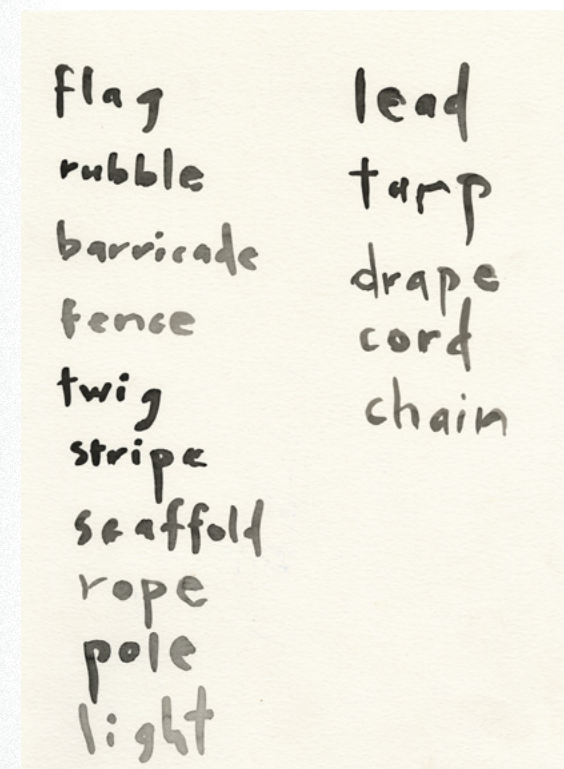 flag
rubble
barricade
fence
twig
stripe
scaffold
rope
pole
light
lead
tarp
drape
cord
chain